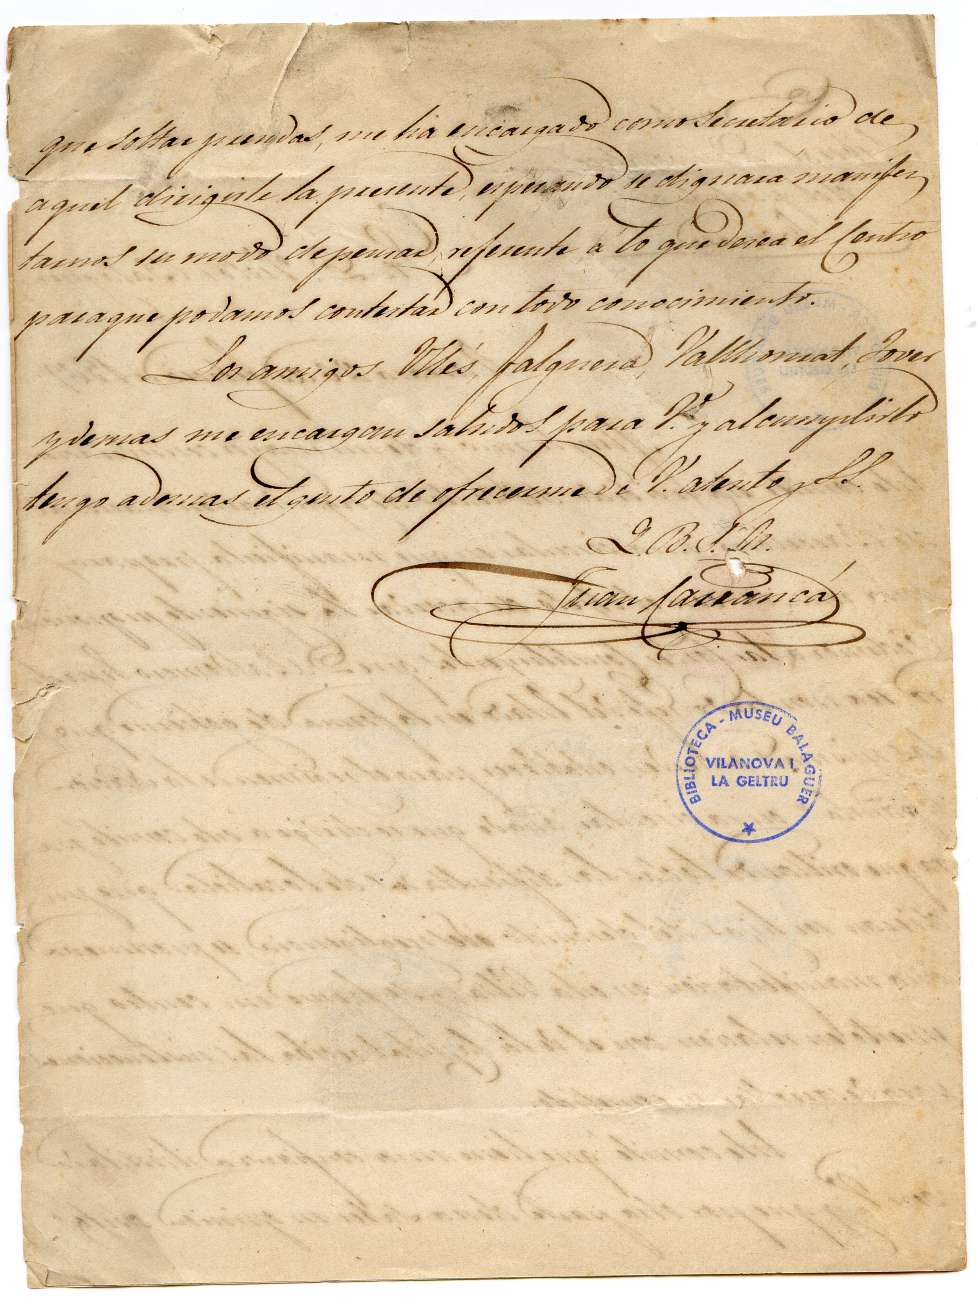 que soltar prendas, me ha encargado como secretario de
aquel dirigirle la presente, esperando se dignara manifes
tarnos su modo de pensar, referente á lo que desea el Centro
para que podamos contestar con todo conocimiento.
Los amigos Ullés, Falguera, Vallhonrat, Jover
y demas me encargan saludos para V. y al cumplirlo
tengo ademas el gusto de ofrecerme de V. atento y S.S.
Q. B. S. M.
Juan Carrancá
BIBLIOTECA - MUSEU BALAGUER
VILANOVA I
LA GELTRU